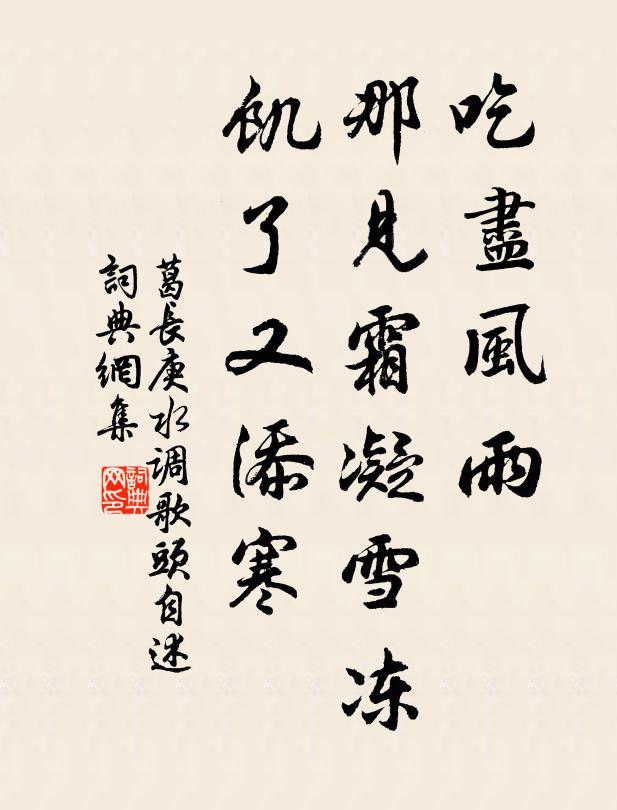 吃盡風雨
那見霜凝雪冻
飢了又添寒
葛長庚水调歌頭自述
詞典網集
詞典网印